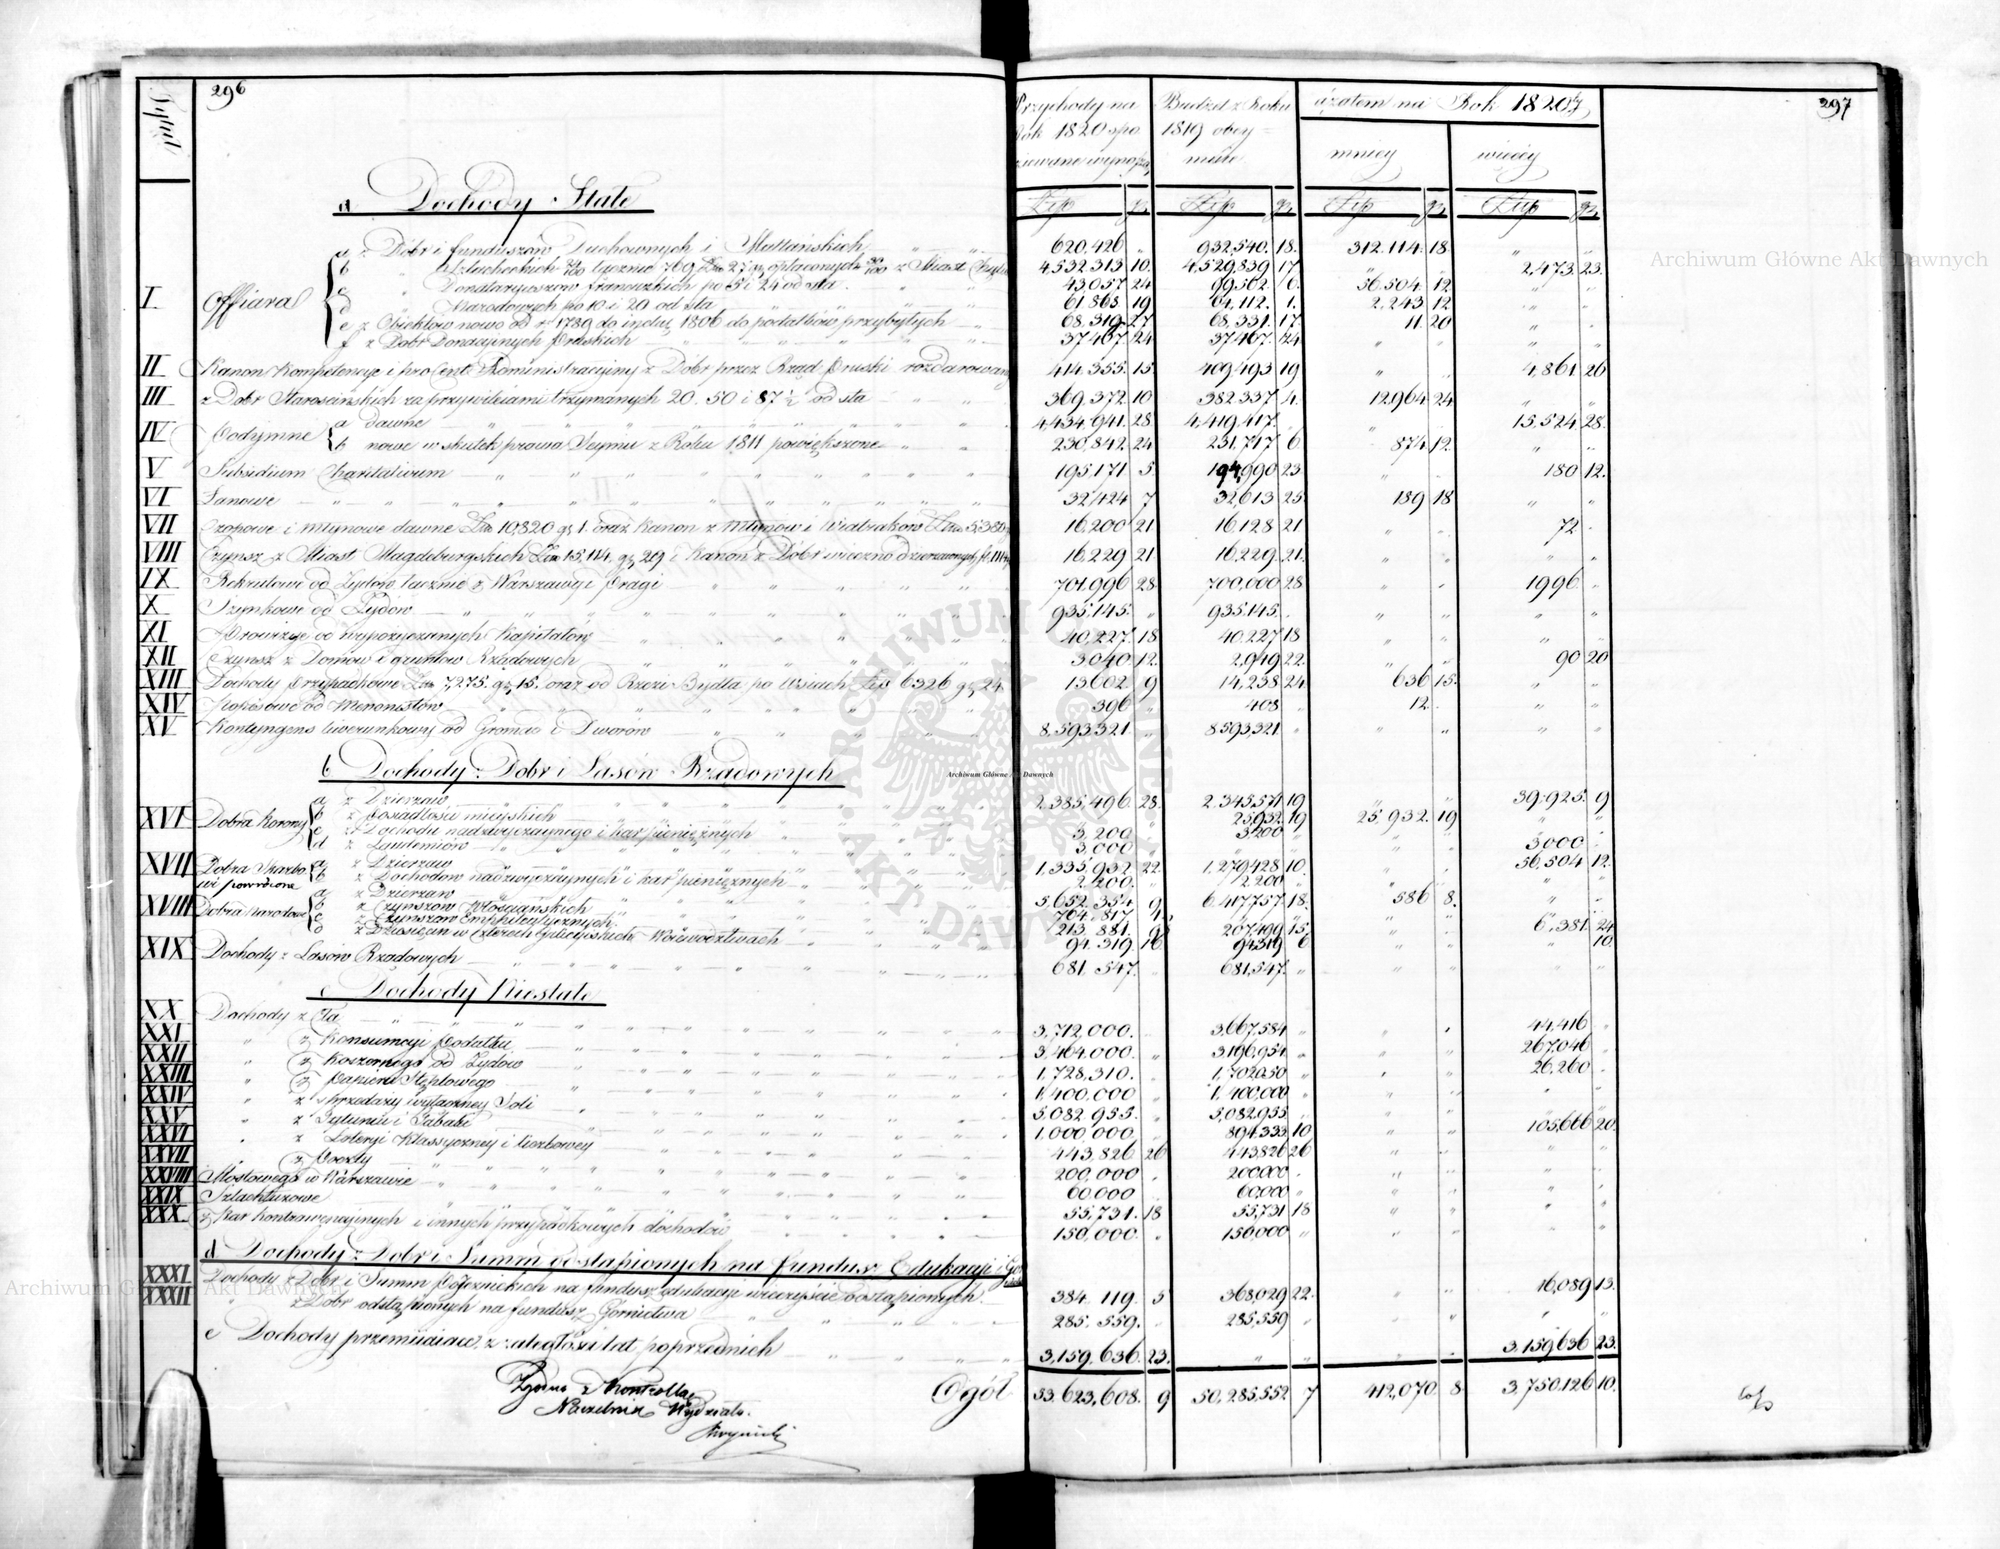 296
Tytuł
a Dochody Stałe
I Offiara
a z Dóbr i funduszów Duchownych i Maltańskich
b " Szlacheckich
c " Donataryuszów francuzkich po 5 i 24 od sta
d " Narodowych po 10 i 20 od sta
e z Obiektów nowo od r. 1789 do inclus. 1806 do podatków przybyłych
f z Dóbr Donacyjnych Pruskich
II Kanon Kompetencye i procent Administracyiny z Dóbr przez Rząd Pruski rozdarowan
III z Dóbr Starościńskich za przywilejami trzymanych 20. 50 i 87 ½ od sta
IV Podymne
a dawne
b nowe w skutek prawa Seymu z Roku 1811 powiększone
V Subsidium Charitativum
VI Łanowe
VII Czopowe i młynowe dawne Złp 10,820 gr 1. oraz Kanon z Młynów i Wiatraków
VIII Czynsz z Miast Magdeburgskich i Kanon z Dóbr wieczno dzierżawnych
IX Rekrutowe od Żydów łącznie z Warszawą i Pragi
X Szynkowe od Żydów
XI Prowizye od wypożyczanych Kapitałów
XII Czynsz z Domów i gruntów Rządowych
XIII Dochody Przypadkowe Złp 7,275. gr 15. oraz od Rzezi Bydła po Wsiach Złp 6326 gr 24
XIV od Menonistów
XV Kontyngens liwerunkowy od Gromad i Dworów
b Dochody z Dóbr i Lasów Rządowych
XVI Dobra Korony
a z Dzierzaw
b z Posadłości mieyskich
c z Dochodu nadzwyczaynego i kar pieniężnych
d z Laudemiów
XVII Dobra Skarbowi powrócone
a z Dzierzaw
b z Dochodów nadzwyczaynych i kar pieniężnych
XVIII Dobra Narodowe
a z Dzierzaw
b z Czynszów Włościańskich
c z Czynszów Emphiteutycznych
d z Dziesięcin w czterech Galicyiskich Woiewodztwach
XIX Dochody z Lasów Rządowych
c Dochody Niestałe
XX Dochody z Cła
XXI " z Konsumcyi Podatku
XXII " z Koszernego od Żydów
XXIII " z Papieru Stęplowego
XXIV " z sprzedaży wyłączney Soli
XXV " z Tytuniu i Tabaki
XXVI " z Loteryi Klassyczney i liczbowey
XXVII " z Poczty
XXVIII Mostowego w Warszawie
XXIX Szlachtuzowe
XXX z Kar Kontrawencyinych i innych przypadkowych dochodów
d Dochody z Dóbr i Summ odstąpionych na fundusz Edukacyi i
XXXI Dochody z Dóbr i Summ Pojezuickich na fundusz edukacyi wieczyście odstąpionych.
XXXII " z Dóbr odstąpionych na fundusz Górnictwa
e Dochody przemiiaiące z zaległości lat poprzednich
Ogół
Zgodno z Kontrollą
Naczelnik Wydziału
297
Przychody na Rok 1820 spodziewane wynoszą
Budżet z Roku 1819 obeymuie
a zatem na Rok 1820
mniey
więcey
Złp gr. Złp gr. Złp gr. Złp gr.
620,426 " 932,540. 18. 312,114. 18 " "
4,532,313 10. 4,529,839 17 " " 2,473. 23.
43,057 24 99,562 6. 56,504 12. " "
61,868 19 64,112. 1. 2,243 12 " "
68,319 27 68,331. 17. 11. 20 " "
37,467 24 37,467. 24 " " " "
414,355. 15 409,493 19 " " 4,861. 26
369,372 10 382,337 4. 12,964 24 " "
4,434,941. 28 4,419,417. " " " 15,524 28.
230,842. 24 231,717 6 874 12. " "
195,171 5 194,990 23 " " 180 12.
32,424 7 32,613 25. 189 18 " "
16,200 21 16,128 21 " " 72 "
16,229 21 16,229. 21. " " " "
701,996 28 700,000 28 " " 1996 "
935,145. " 935,145. " " " " "
40,227. 18 40,227 18 " " " "
3,040. 12. 2,949 22. " " 90 20
13,602. 9 14,238 24. 636 15. " "
396 " 408 " 12. " " "
8,593,321. " 8,593,321 " " " " "
2,385,496. 28. 2,345,571 19 " " 39,925. 9
" " 25,932. 19 25,932. 19 " "
3,200 " 3,200 " " " " "
3,000 " " " " " 3,000 "
1,335,932 22. 1,279,428 10. " " 56,504 12.
2,200. " 2,200 " " " " "
5,652,354 9 6,417,757 18. 586 8. " "
704,817
213,881. 207,499 15 " " 6,381. 24
94,319 16 94,319 6 " " " 10.
681,547. " 681,547. " " " " "
3,712,000. " 3,667,584 " " " 44,416 "
3,464,000. " 3,196,954 " " " 267,046 "
1,728,310. " 1,702,050 " " " 26,260 "
1,400,000 " 1,400,000 " " " " "
5,082,955. " 5,082,955 " " " " "
1,000,000. " 894,333 10 " " 105,666 20.
443,826 26 443,826 26 " " " "
200,000 " 200,000 " " " " "
60,000 " 60,000 " " " " "
55,731. 18 55,731 18 " " " "
150,000. " 150,000 " " " " "
384,119. 5 368,029 22. " " 16,089 13.
285,559. " 285,559 " " " " "
3,159,636 23. " " " " 3,159,636 23.
53,623,608. 9 50,285,552 7 412,070. 8 3,750,126 10.
Archiwum Główne Akt Dawnych
Archiwum Główne Akt Dawnych
Archiwum Główne Akt Dawnych
ARCHIWUM GŁÓWNE AKT DAWNYCH